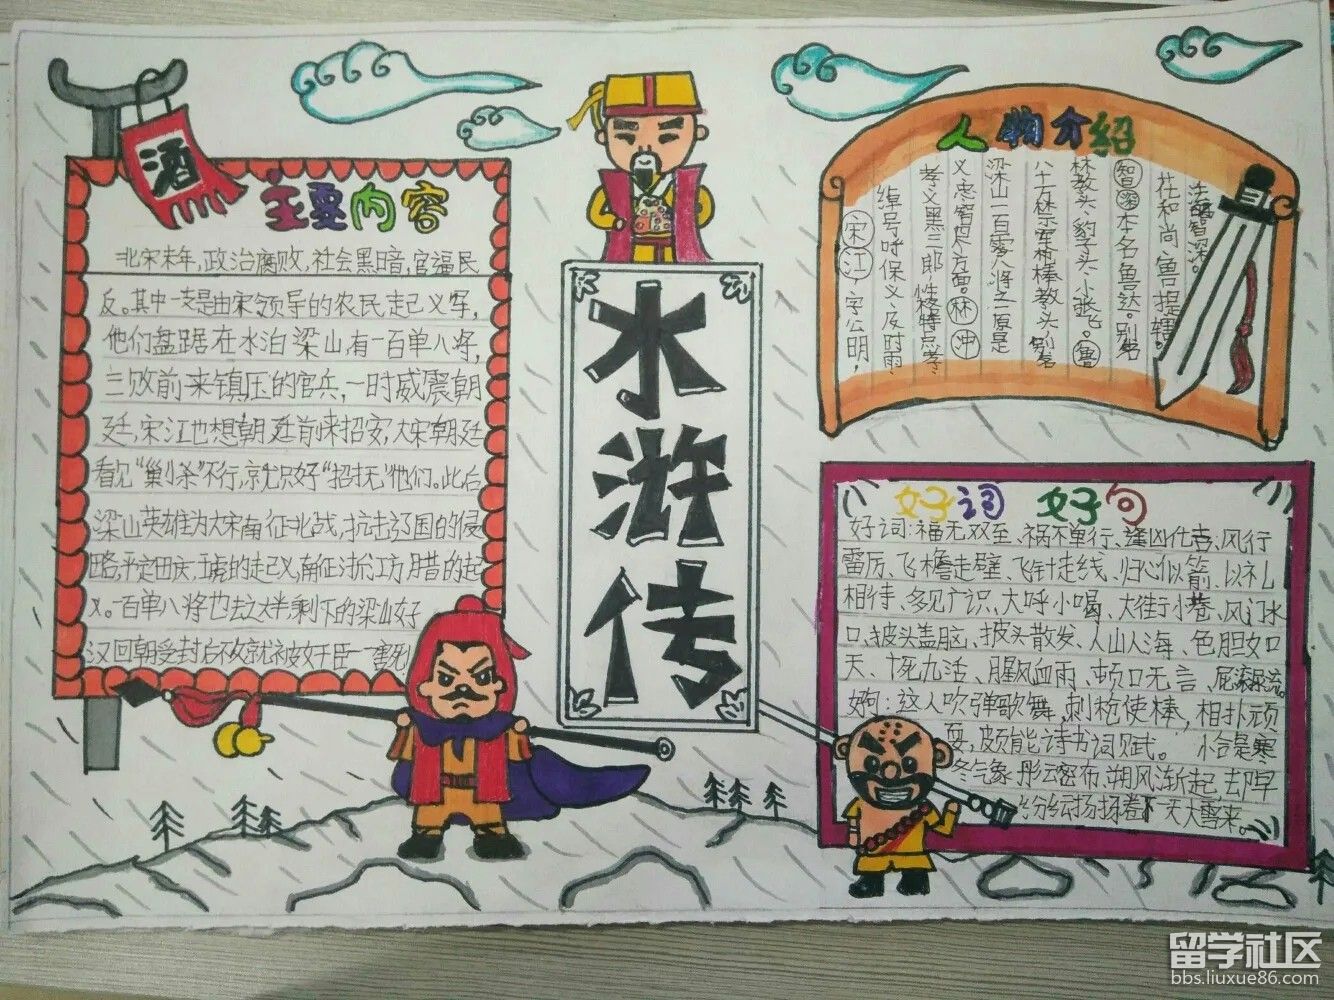 酒
主要内容
北宋末年,政治腐败,社会黑暗,官逼民
反。其中一支是由宋领导的农民起义军,
他们盘踞在水泊梁山,有一百单八将,
三败前来镇压的官兵,一时威震朝
廷,宋江也想朝廷前来招安,大宋朝廷
看见“巢小杀”不行,就只好“招抚”他们。此后
梁山英雄为大宋南征北战,抗击辽国的侵
略,平定田庆、王虎的起义,南征浙江方腊的起
义。一百单八将也去之大半,剩下的梁山好
汉回朝受封后不久就被奸臣一一害死
水浒传
人物介绍
宋江,字公明,
绰号呼保义、及时雨、
孝义黑三郎,性格特点:孝、
义忠智四方面。林冲
梁山一百零八将之一原是
八十万禁军枪棒教头,别名
林教头、豹子头、小张飞。鲁
智深本名鲁达。别名
花和尚、鲁提辖、
鲁智深。
好词 好句
好词:福无双至、祸不单行、逢凶化吉、风行
雷厉、飞檐走壁、飞针走线、归心似箭、以礼
相待、多见广识、大呼小喝、大街小巷、风门水
口、披头盖脑、披头散发、人山人海、色胆如
天、十死九活、腥风血雨、顿口无言、屁滚尿流。
好句:这人吹弹歌舞,刺枪使棒,相扑顽
耍,颇能诗书词赋。 小合是寒
冬气象,彤云密布,朔风渐起,去早
纷纷扬扬卷下一天大雪来。
留学社区
bbs.liuxue86.com